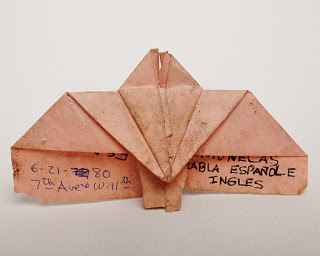 6-21-80
7th Ave W. 11th
UNELAS
ABLA ESPAÑOL E
INGLES